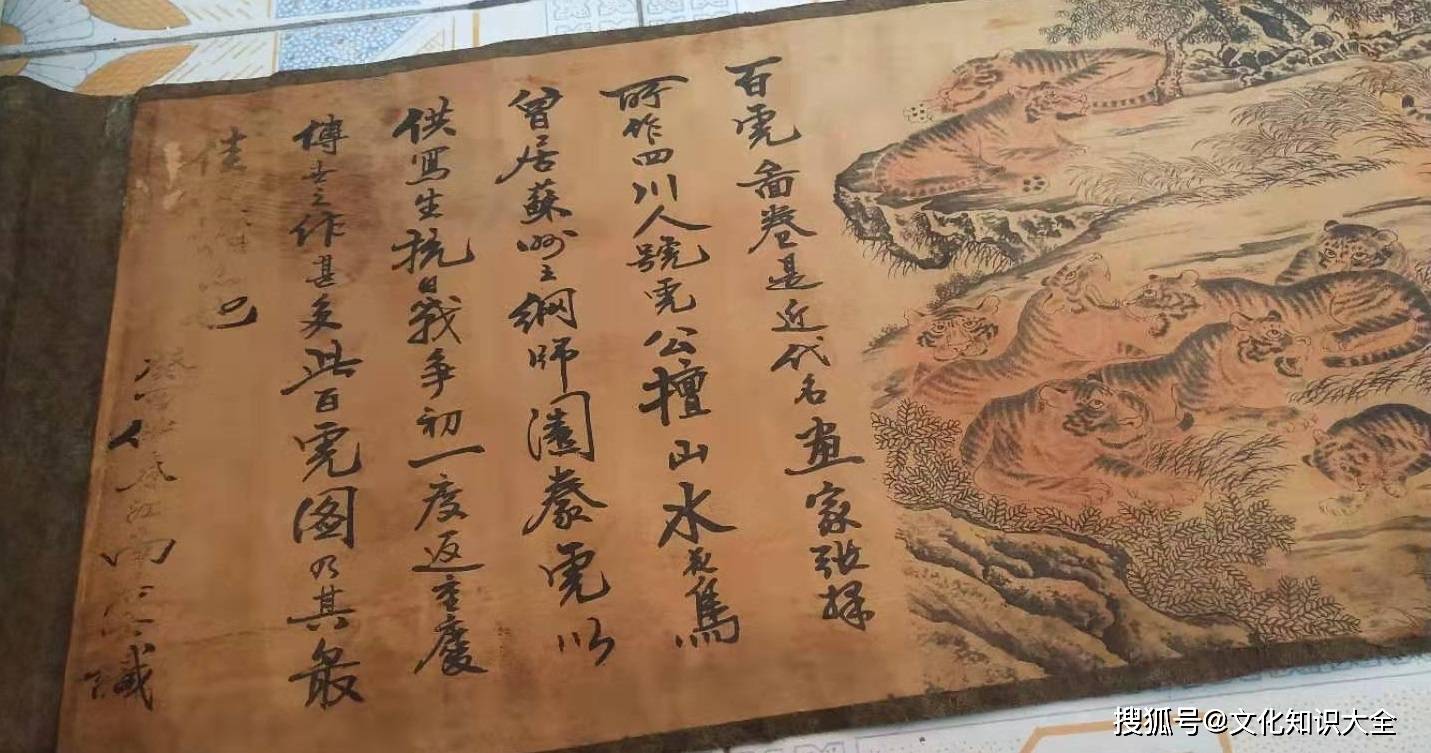 百虎圖卷是近代名畫家張擇
所作四川人號虎公擅山水花鳥
曾居蘇州之網師園豢虎以
供寫生抗日戰争初一度返重慶
傳世之作甚多此百虎图乃其最
佳
巳
識
搜狐号@文化知识大全